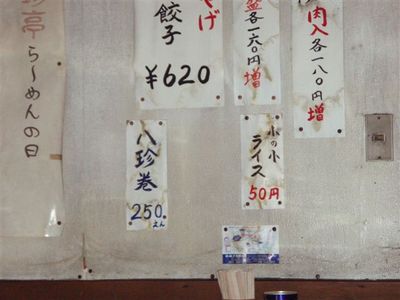 珍亭
らーめんの日
げ
餃子
¥620
各一六〇円
増
肉入各一八〇円
増
八珍巻
250えん
小の小
ライス
50円